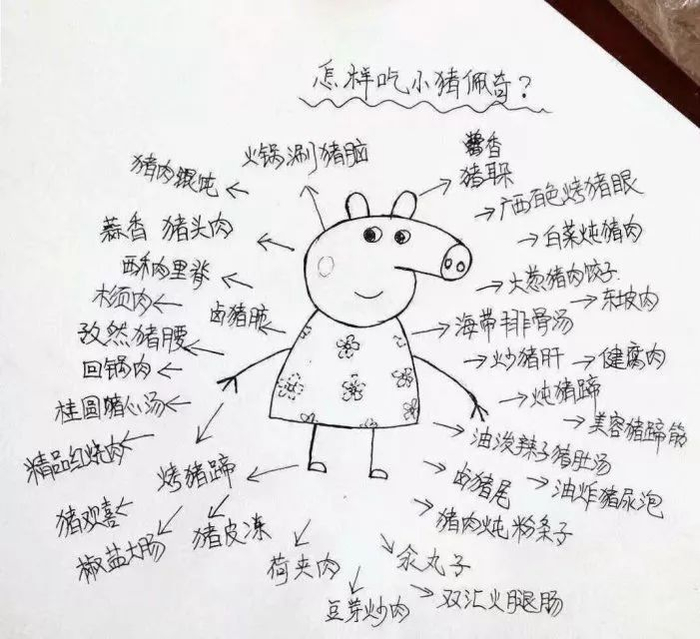 怎样吃小猪佩奇?
火锅涮猪脑
酱香
猪耳朵
猪肉馄饨
广西百色烤猪眼
蒜香 猪头肉
白菜炖猪肉
酥肉里脊
大葱猪肉饺子
东坡肉
木须肉
卤猪脸
海带排骨汤
孜然猪腰
回锅肉
炒猪肝
健腐肉
桂圆猪心汤
炖猪蹄
美容猪蹄筋
精品红烧肉
烤猪蹄
油泼辣子猪肚汤
卤猪尾
油炸猪尿泡
猪欢喜
猪皮冻
猪肉炖粉条子
椒盐大肠
荷夹肉
氽丸子
豆芽炒肉
双汇火腿肠